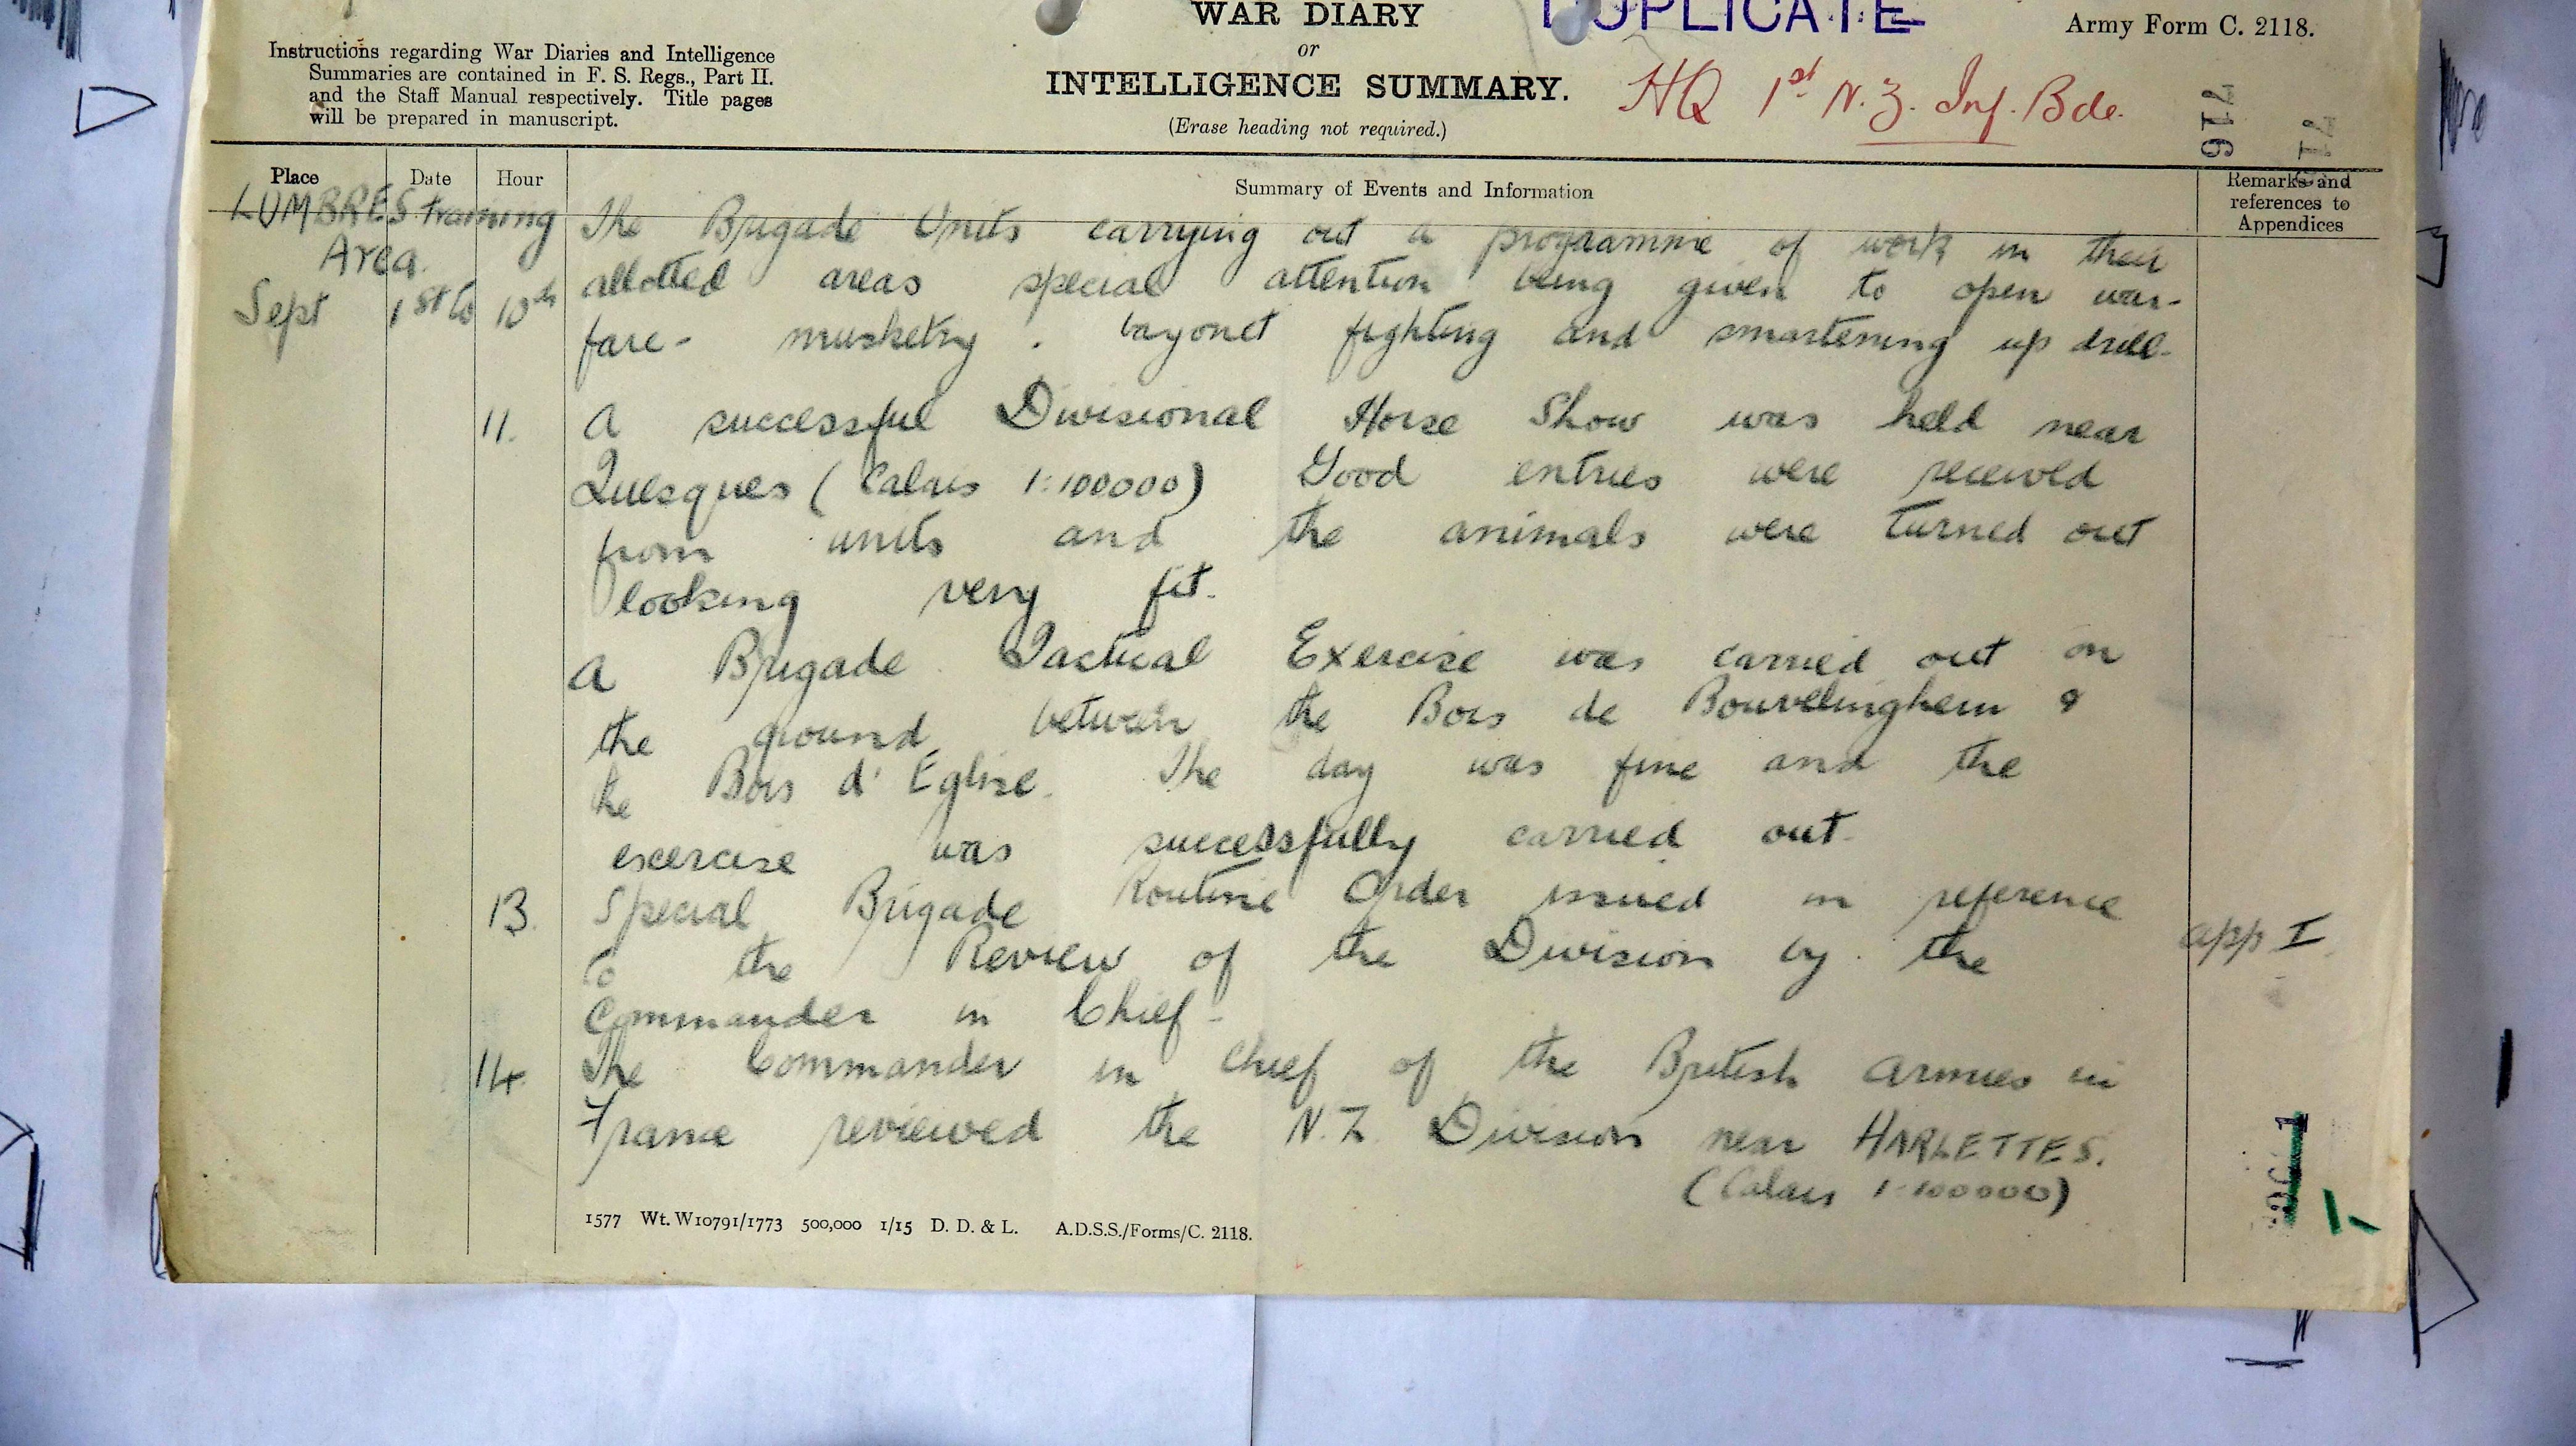 WAR DIARY
or
INTELLIGENCE SUMMARY.
(Erase heading not required.)
DUPLICATE
Army Form C. 2118.
Instructions regarding War Diaries and Intelligence
Summaries are contained in F. S. Regs., Part II.
and the Staff Manual respectively. Title pages
will be prepared in manuscript.
HQ 1st N.Z. Inf. Bde.
716
Place Date Hour Summary of Events and Information Remarks and references to Appendices
LUMBRES training
Area.
Sept 1st to 10th
The Brigade Units carrying out a programme of work in their
allotted areas special attention being given to open war-
fare - musketry . bayonet fighting and smartening up drill.
11. A successful Divisional Horse Show was held near
Quesques (Calais 1:100000) Good entries were received
from units and the animals were turned out
looking very fit.
A Brigade Tactical Exercise was carried out on
the ground between the Bois de Bouvelinghem &
the Bois d' Église. The day was fine and the
exercise was successfully carried out.
13. Special Brigade Routine Order issued in reference app I
to the Review of the Division by the
Commander in Chief -
14. The Commander in Chief of the British Armies in
France reviewed the N.Z. Division near HARLETTES.
(Calais 1:100000)
1577 Wt. W10791/1773 500,000 1/15 D. D. & L. A.D.S.S./Forms/C. 2118.